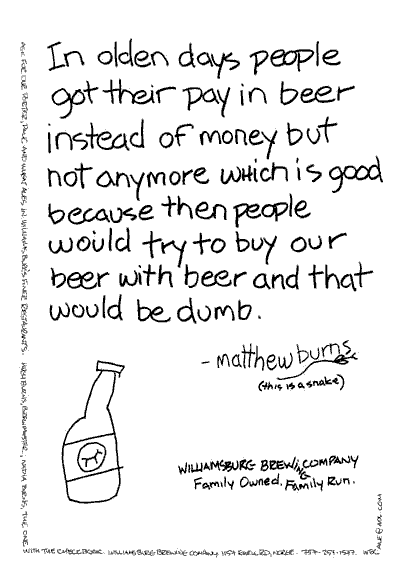 In olden days people
got their pay in beer
instead of money but
not anymore which is good
because then people
would try to buy our
beer with beer and that
would be dumb.
- matthew burns
(this is a snake)
WILLIAMSBURG BREWING COMPANY
Family Owned. Family Run.
ASK FOR OUR PORTER, PALE AND WHEAT ALES IN WILLIAMSBURG'S FINER RESTAURANTS. HUGH BURNS, BREWMASTER, NADIA BURNS, THE ONE
WITH THE CHECKBOOK. WILLIAMSBURG BREWING COMPANY. EWELL RD, 757-253-1577. WBC
ALE@AOL.COM